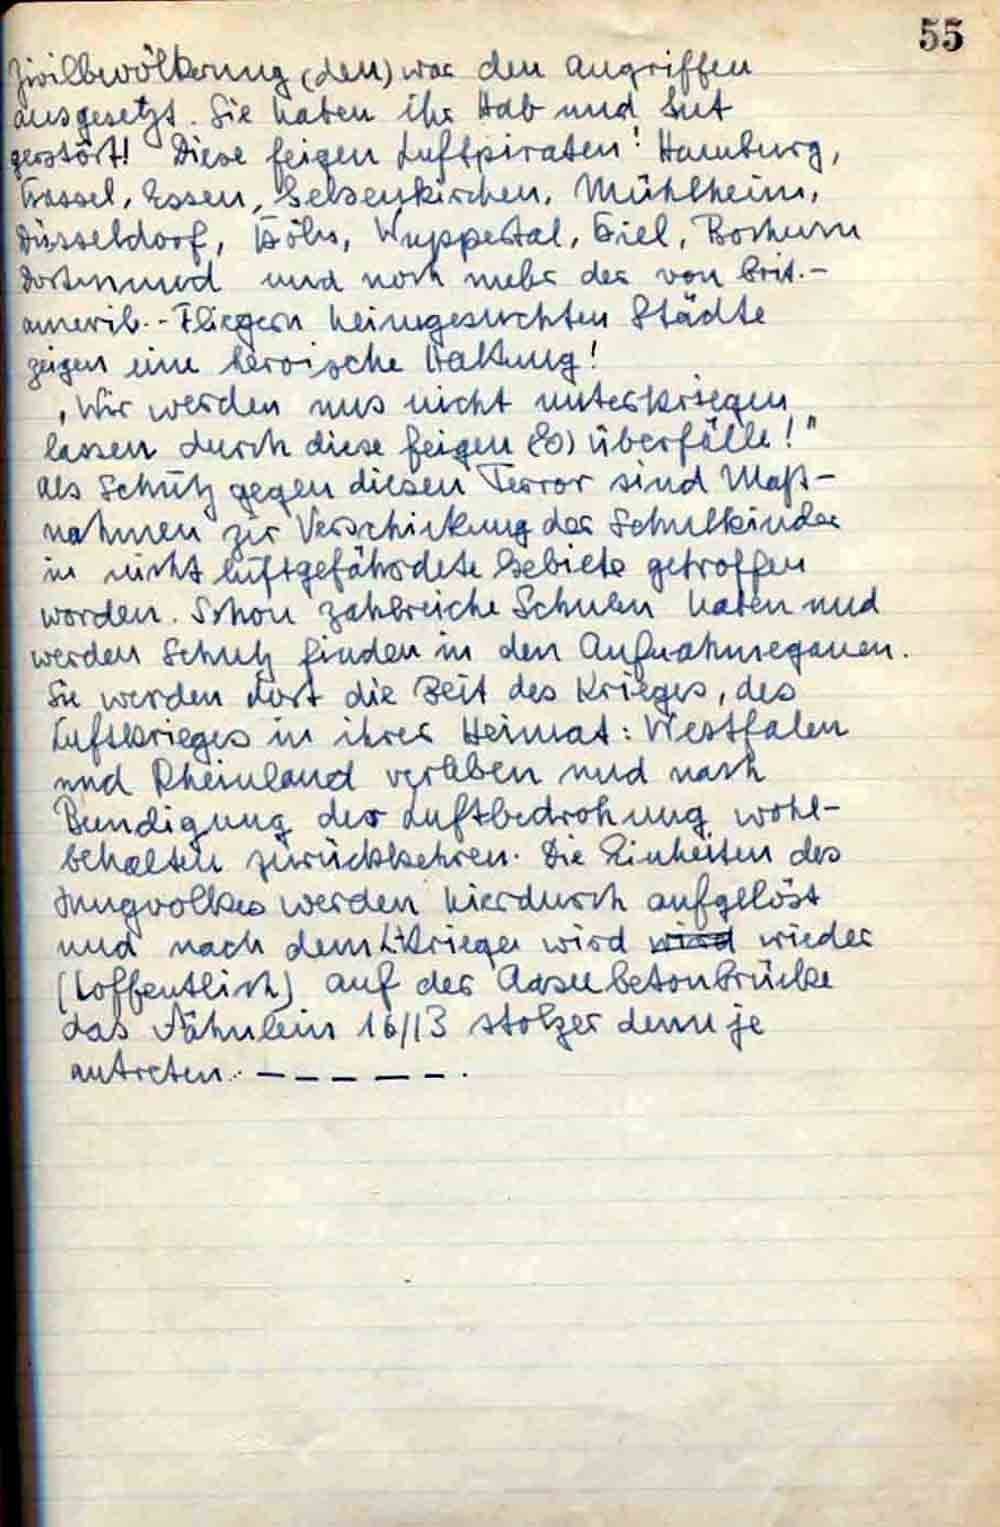 55
Zivilbevölkerung (den) war den Angriffen
ausgesetzt. Sie haben ihr Hab und Gut
zerstört! Diese feigen Luftpiraten! Hamburg,
Kassel, Essen, Gelsenkirchen, Mühlheim,
Düsseldorf, Köln, Wuppertal, Kiel, Bochum
Dortmund und noch mehr der von brit.-
amerik.-Fliegern heimgesuchten Städte
zeigen eine heroische Haltung!
„Wir werden uns nicht unterkriegen
lassen durch diese feigen Überfälle!"
Als Schutz gegen diesen Terror sind Maß-
nahmen zur Verschickung der Schulkinder
in nicht luftgefährdete Gebiete getroffen
worden. Schon zahlreiche Schulen haben und
werden Schutz finden in den Aufnahmegauen.
Sie werden dort die Zeit des Krieges, des
Luftkrieges in ihrer Heimat: Westfalen
und Rheinland verleben und nach
Beendigung der Luftbedrohung wohl-
behalten zurückkehren. Die Einheiten des
Jungvolkes werden hierdurch aufgelöst
und nach dem Kriege wird wird wieder
(hoffentlich) auf der Aaseebetonbrücke
das Fähnlein 16/13 stolzer denn je
antreten. – – – – – –.